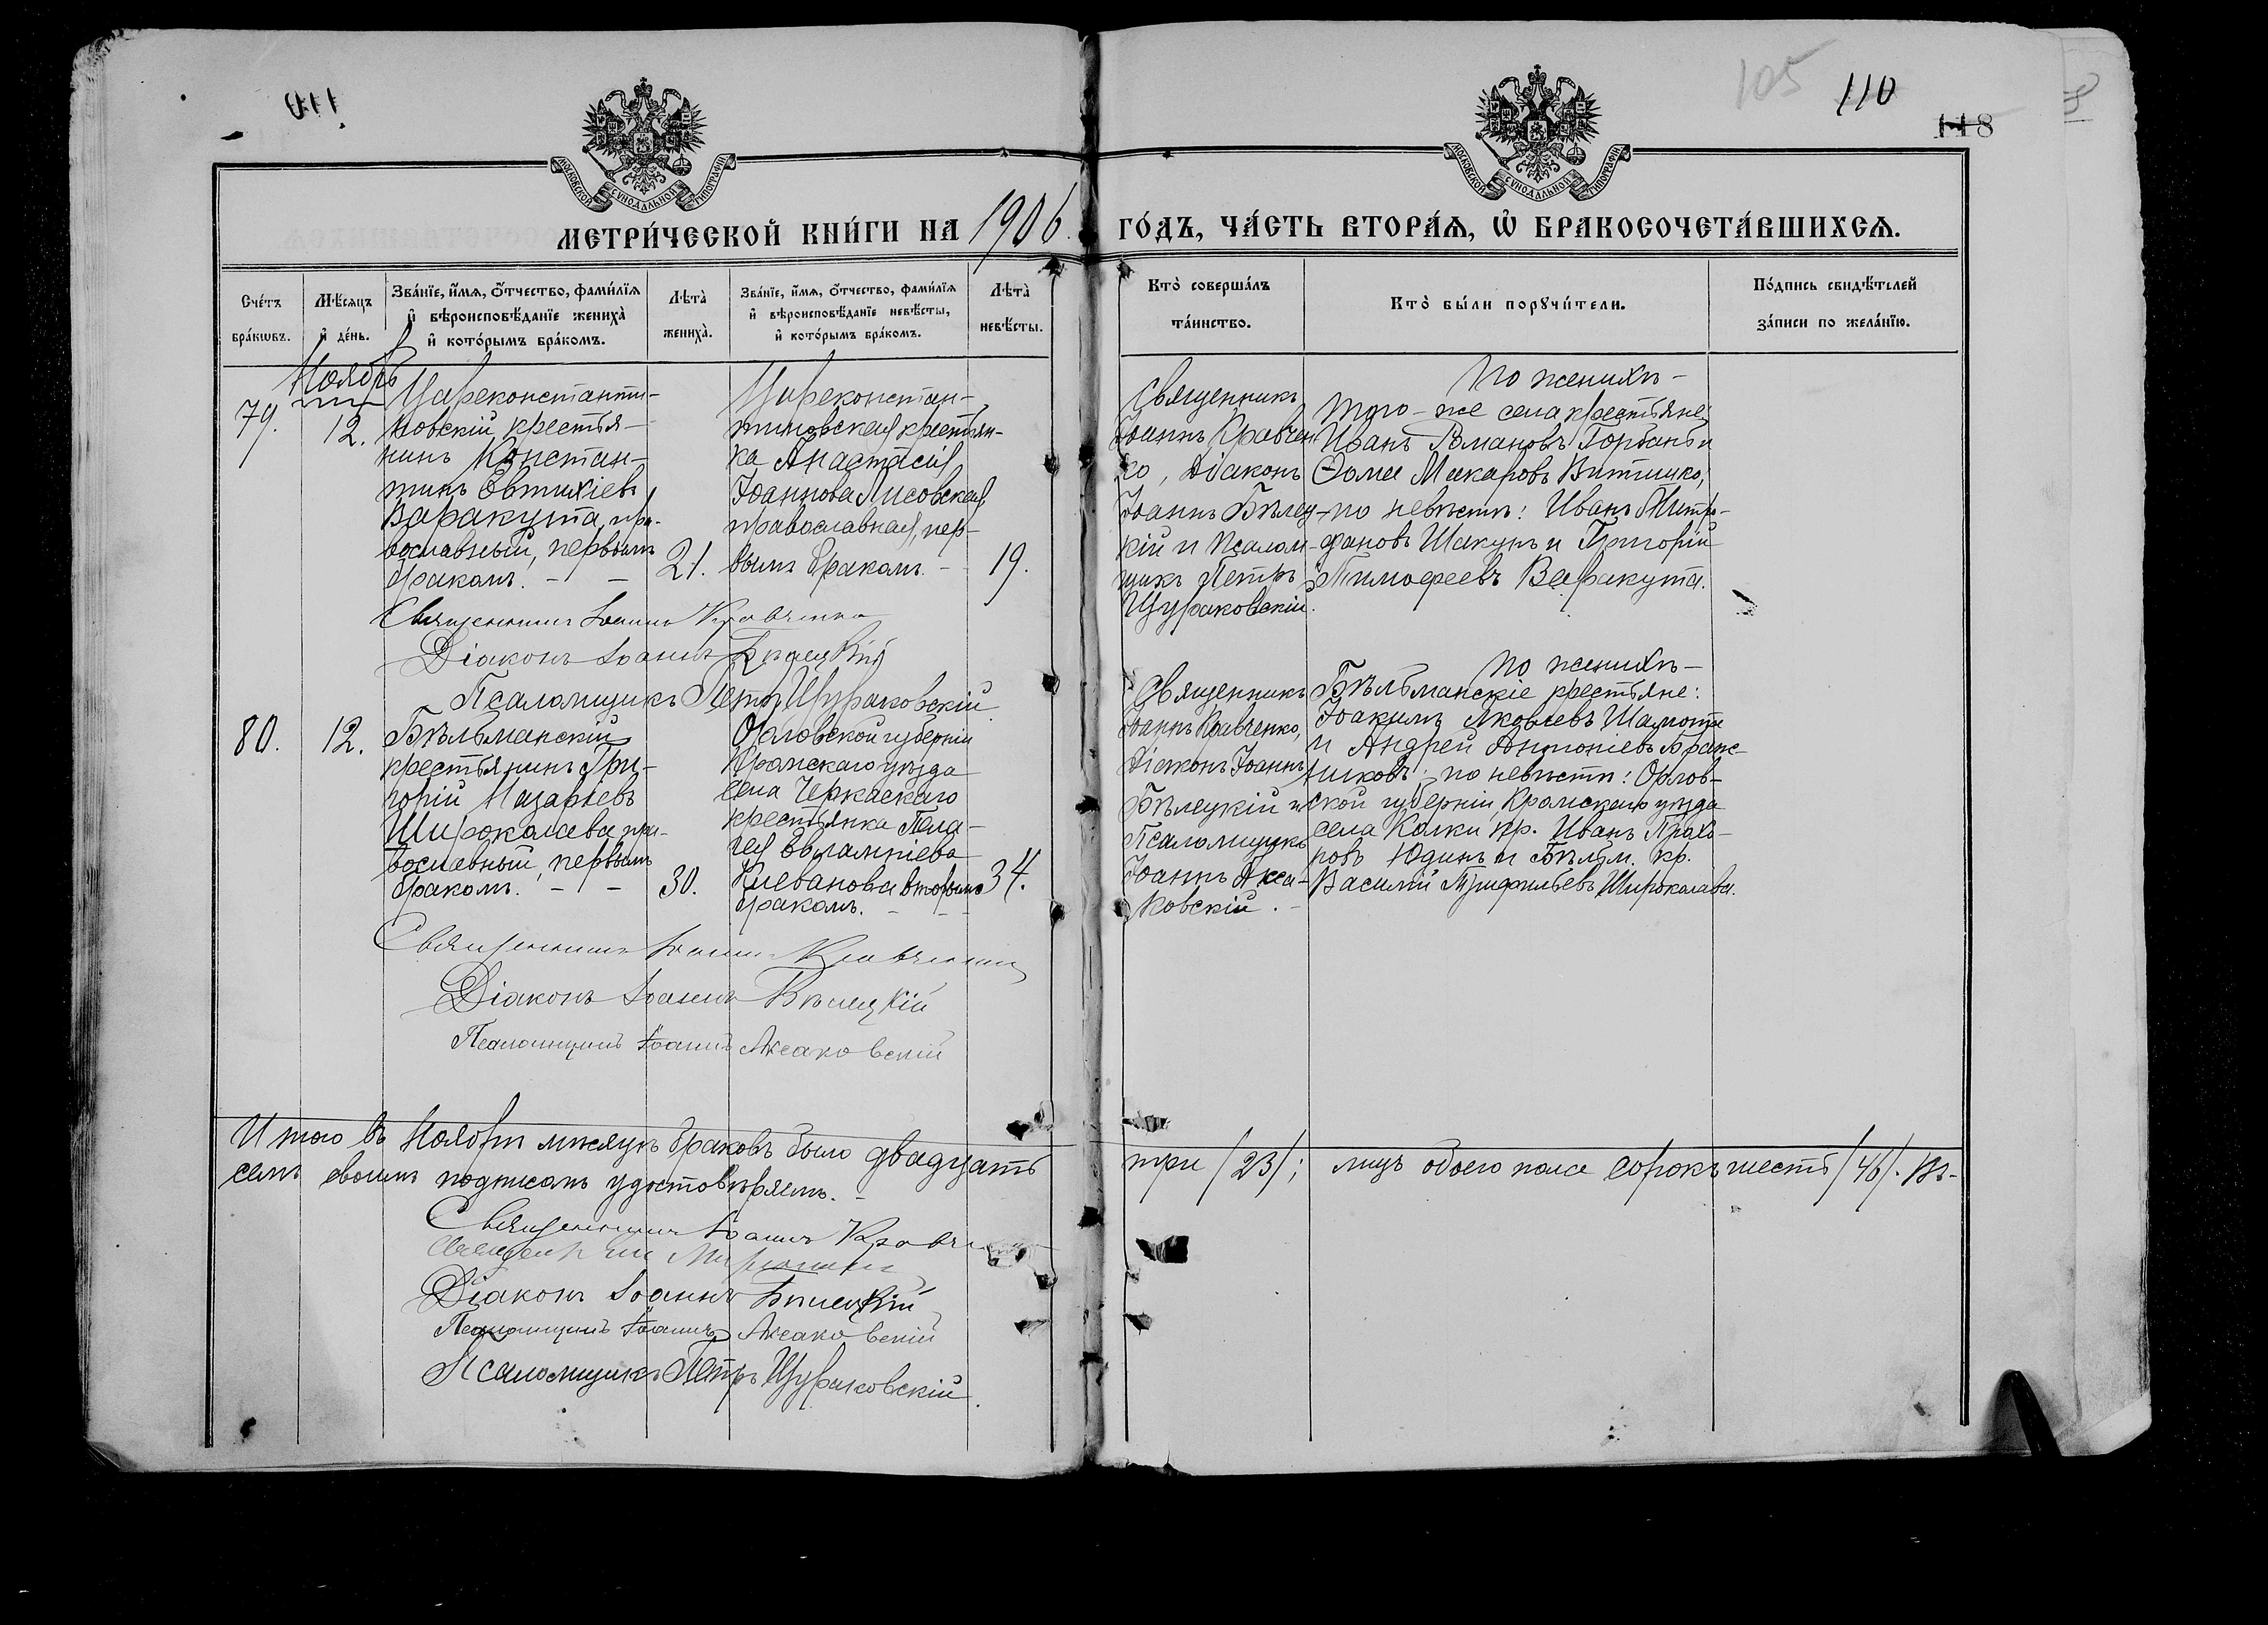 110
105
110
118
МОСКОВСКОЙ СѴНОДАЛЬНОЙ ТИПОГРАФІИ
МОСКОВСКОЙ СѴНОДАЛЬНОЙ ТИПОГРАФІИ
МЕТРИ́ЧЕСКОЙ КНИ́ГИ НА 1906 ГО́ДЪ, ЧА́СТЬ ВТОРА́Ѧ, Ѽ БРАКОСОЧЕТА́ВШИХСѦ.
Сче́тъ бра́кѡвъ.
Мѣ́сѧцъ и҆ де́нь.
Зва́нїе, и҆́мѧ, ѻ҆́тчество, фами́лїѧ и҆ вѣроисповѣ́данїе жениха̀ и҆ кото́рымъ бра́комъ.
Лѣта̀ жениха̀.
Зва́нїе, и҆́мѧ, ѻ҆́тчество, фами́лїѧ и҆ вѣроисповѣ́данїе невѣ́сты, и҆ кото́рымъ бра́комъ.
Лѣта̀ невѣ́сты.
Кто̀ соверша́лъ та́инство.
Кто̀ бы́ли порꙋчи́тели.
По́дпись свидѣ́телей за́писи по жела́нїю.
Ноябрь
79.
12.
Цареконстанти-
новскій крестья-
нинъ Констан-
тинъ Евтихіевъ
Варакута, пра-
вославный, первымъ
бракомъ. - -
21.
Цареконстан-
тиновская крестьян-
ка Анастасія
Іоаннова Лисовская
православная, пер-
вымъ бракомъ. -
19.
Священникъ
Іоаннъ Кравчен-
ко, Діаконъ
Іоаннъ Бѣлец-
кій и Псалом-
щикъ Петръ
Щураковскій.
По женихѣ -
того-же села крестьяне:
Иванъ Романовъ Горбань и
Ѳома Макаровъ Витишко,
по невѣстѣ: Иванъ Митро-
фановъ Шакунъ и Григорій
Тимофеевъ Варакута.
Священникъ Іоаннъ Кравченко
Діаконъ Іоаннъ Бѣлецкій
Псаломщикъ Петръ Щураковскій
80.
12.
Бѣльманскій
крестьянинъ Гри-
горій Назарьевъ
Широколава пра-
вославный, первымъ
бракомъ. - -
30.
Орловской губерніи
Кромскаго уѣзда
села Черкаскаго
крестьянка Пела-
гея Евлампіева
вторымъ
бракомъ. - -
34.
Священникъ
Іоаннъ Кравченко,
Діаконъ Іоаннъ
Бѣлецкій и
Псаломщикъ
Іоаннъ Акса-
ковскій. -
По женихѣ -
Бѣльманскіе крестьяне:
Іоакимъ Яковлевъ Шаумота
и Андрей Антоніевъ
по невѣстѣ: Орлов-
ской губерніи, Кромскаго уѣзда
села Колки кр. Иванъ Прохо-
ровъ Юдинъ и Бѣльм. кр.
Василій Трифильевъ Широколава.
Священникъ Іоаннъ Кравченко
Діаконъ Іоаннъ Бѣлецкій
Псаломщикъ Іоаннъ Аксаковскій
Итого въ Ноябрѣ мѣсяцѣ браковъ было двадцать три /23/; лицъ обоего пола сорокъ шесть /46/. Въ
семъ своимъ подписомъ удостовѣряемъ. -
Священникъ Іоаннъ Кравченко
Діаконъ Іоаннъ Бѣлецкій
Псаломщикъ Іоаннъ Аксаковскій
Псаломщикъ Петръ Щураковскій.